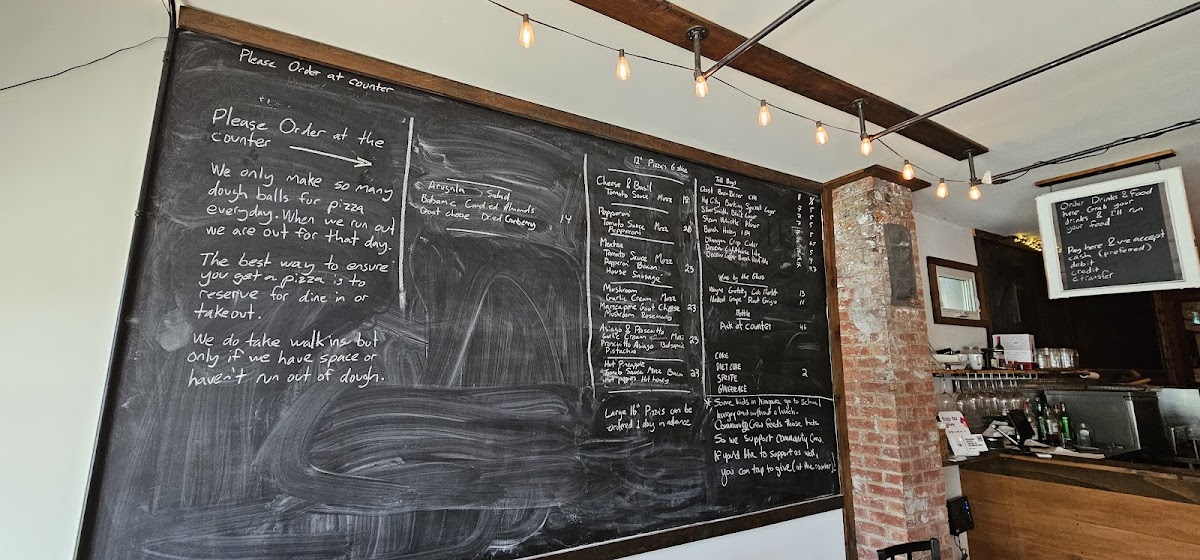 Please Order at counter
Please Order at the
counter
We only make so many
dough balls for pizza
everyday. When we run out
we are out for that day.
The best way to ensure
you get a pizza is to
reserve for dine in or
takeout.
We do take walk ins but
only if we have space or
haven't run out of dough.
Arugula Salad
Balsamic Candied Almonds
Goat cheese Dried Cranberry 14
12" Pizza's 6 slice
Cheese & Basil
Tomato Sauce Mozz 18
Pepperoni
Tomato Sauce Mozz 20
Pepperoni
Meatza
Tomato Sauce Mozz
Pepperoni Bacon 23
House Sausage
Mushroom
Garlic Cream Mozz
Marscapone Goat Cheese 23
Mushroom Rosemary
Asiago & Prosciutto
Garlic Cream Mozz
Prosciutto Asiago Balsamic 23
Pistachio
Hot Pineapple
Tomato Sauce Mozz Bacon 23
Hot peppers Hot honey
Large 16" Pizza's can be
ordered 1 day in advance
Tall Boys
Lager
Black Lager
Pilsner
IPA
Crisp Cider
Wine by the Glass
Wayne Gretzky Cab Merlot 13
Naked Grape Pinot Grigio 11
Bottle
Ask at counter 46
COKE
DIET COKE
SPRITE 2
GINGERALE
* Some kids in Niagara go to school
hungry and without a lunch.
Community Crew feeds those kids.
So we support Community Crew.
If you'd like to support as well,
you can tap to give (at the counter)!
Order Drinks & Food
here Grab your
drinks & I'll run
your food
Pay here & we accept
cash (preferred)
debit
credit
etransfer
tap to